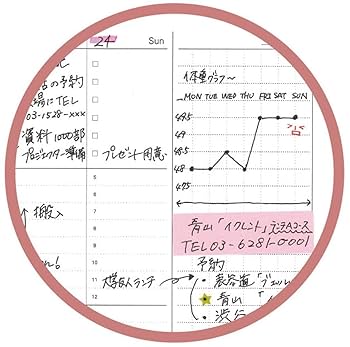 24 Sun
の予約
場にTEL
03-1528-xxx
資料1000部
プロジェクター準備
プレゼント用意
5
6
7
8
9
10
11
12
↑搬入
大学友人ランチ
体重グラフ〜
MON TUE WED THU FRI SAT SUN
49.5
49
48.5
48
47.5
青山「イクレント」
TEL 03-6281-0001
予約
・表参道「ジェル
青山「イ
・渋谷